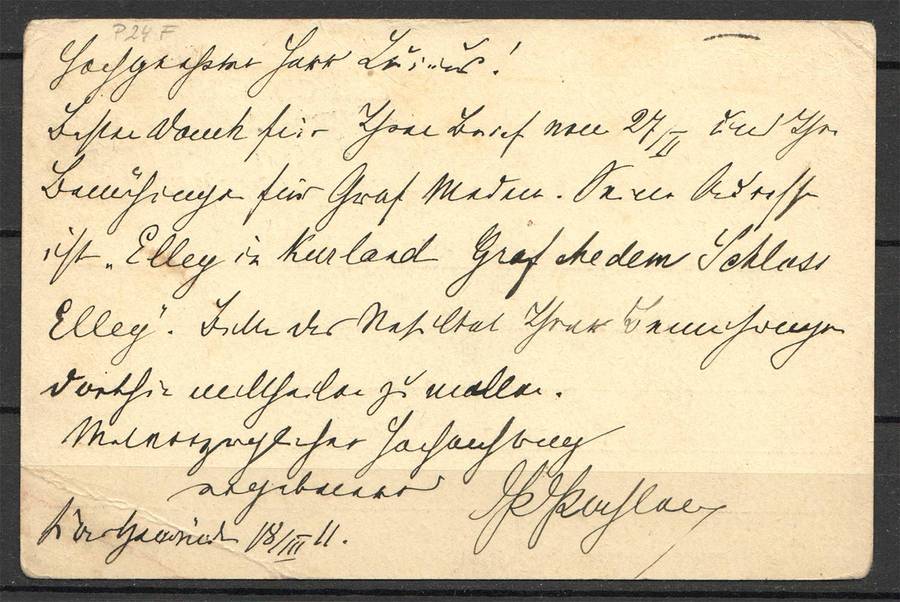 P24F
Hochgeehrter Herr
Besten Dank für Ihren Brief vom 27/II und Ihre
Bemühungen für Graf Medem. Seine Adresse
ist „Elley in Kurland Graf Medem Schloss
Elley". Bitte das Resultat Ihrer Bemühungen
dorthin mittheilen zu wollen.
Hochachtung
ergebenst
18/III 11.